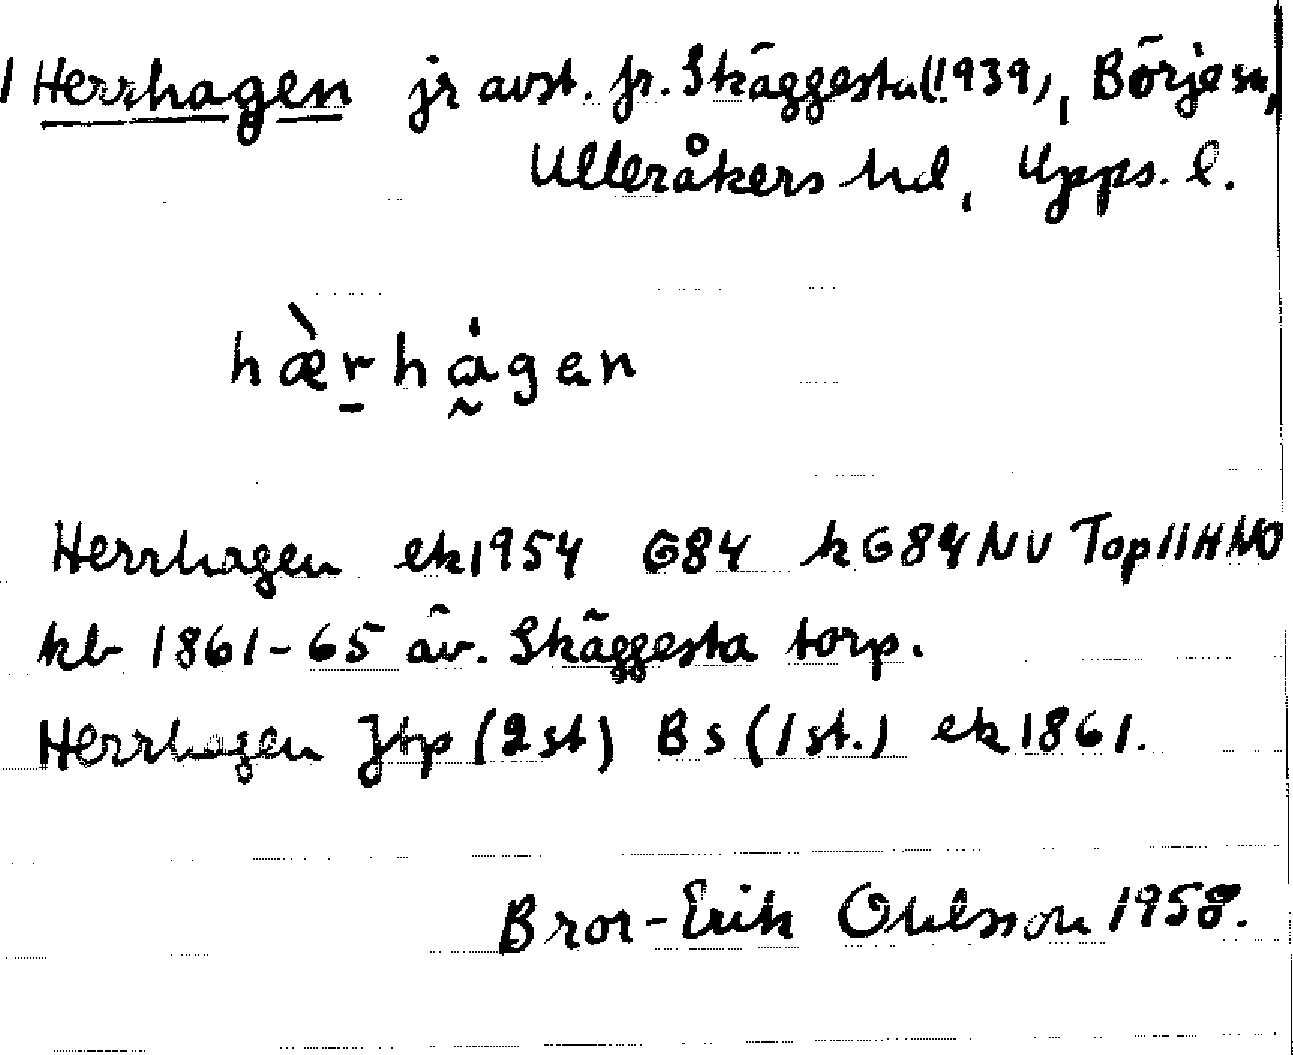 1 Herrhagen jr avst. fr. Skäggesta (1939), Börje sn,
Ulleråkers hd, Upps. l.
hæ̀r̠hȧ̰gen
Herrhagen ek 1954 G84 k G84 NV Top 11H NO
kb 1861-65 äv. Skäggesta torp.
Herrhagen Jtp (2 st) Bs (1 st.) ek 1861.
Bror-Erik Ohlsson 1958.